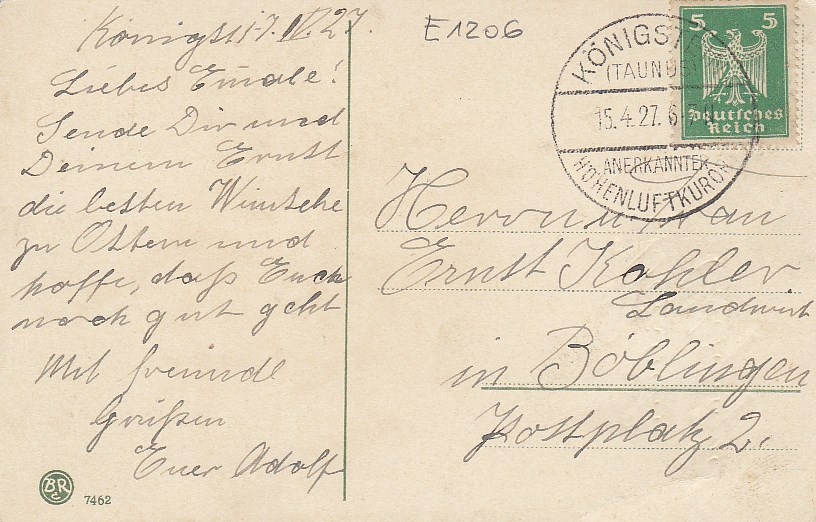 Königst. 17. IV. 27.
Liebes Emale!
Sende Dir und
Deinem Ernst
die besten Wünsche
zu Ostern und
hoffe, daß Euch
noch gut geht
Mit freundl
Grüßen
Euer Adolf
BR
7462
E1206
KÖNIGSTE
(TAUNUS)
15.4.27. 6-7
ANERKANNTER
HÖHENLUFTKURORT
5 5
Deutsches
Reich
Herrn u. Frau
Ernst Kohler
Landwirt
in Böblingen
Postplatz 2.